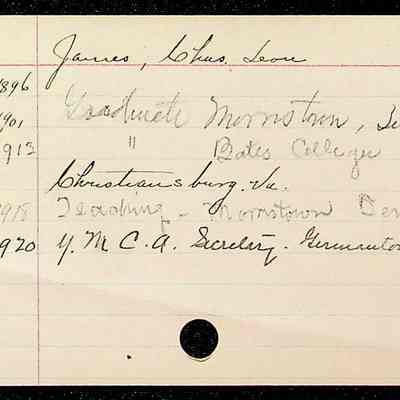 James, Chas. Leon
1896
1901 Graduate Morristown,
1913 " Bates College
Christiansburg. Va.
1918 Teaching - Morristown
1920 Y. M. C. A. Secretary. Germanto